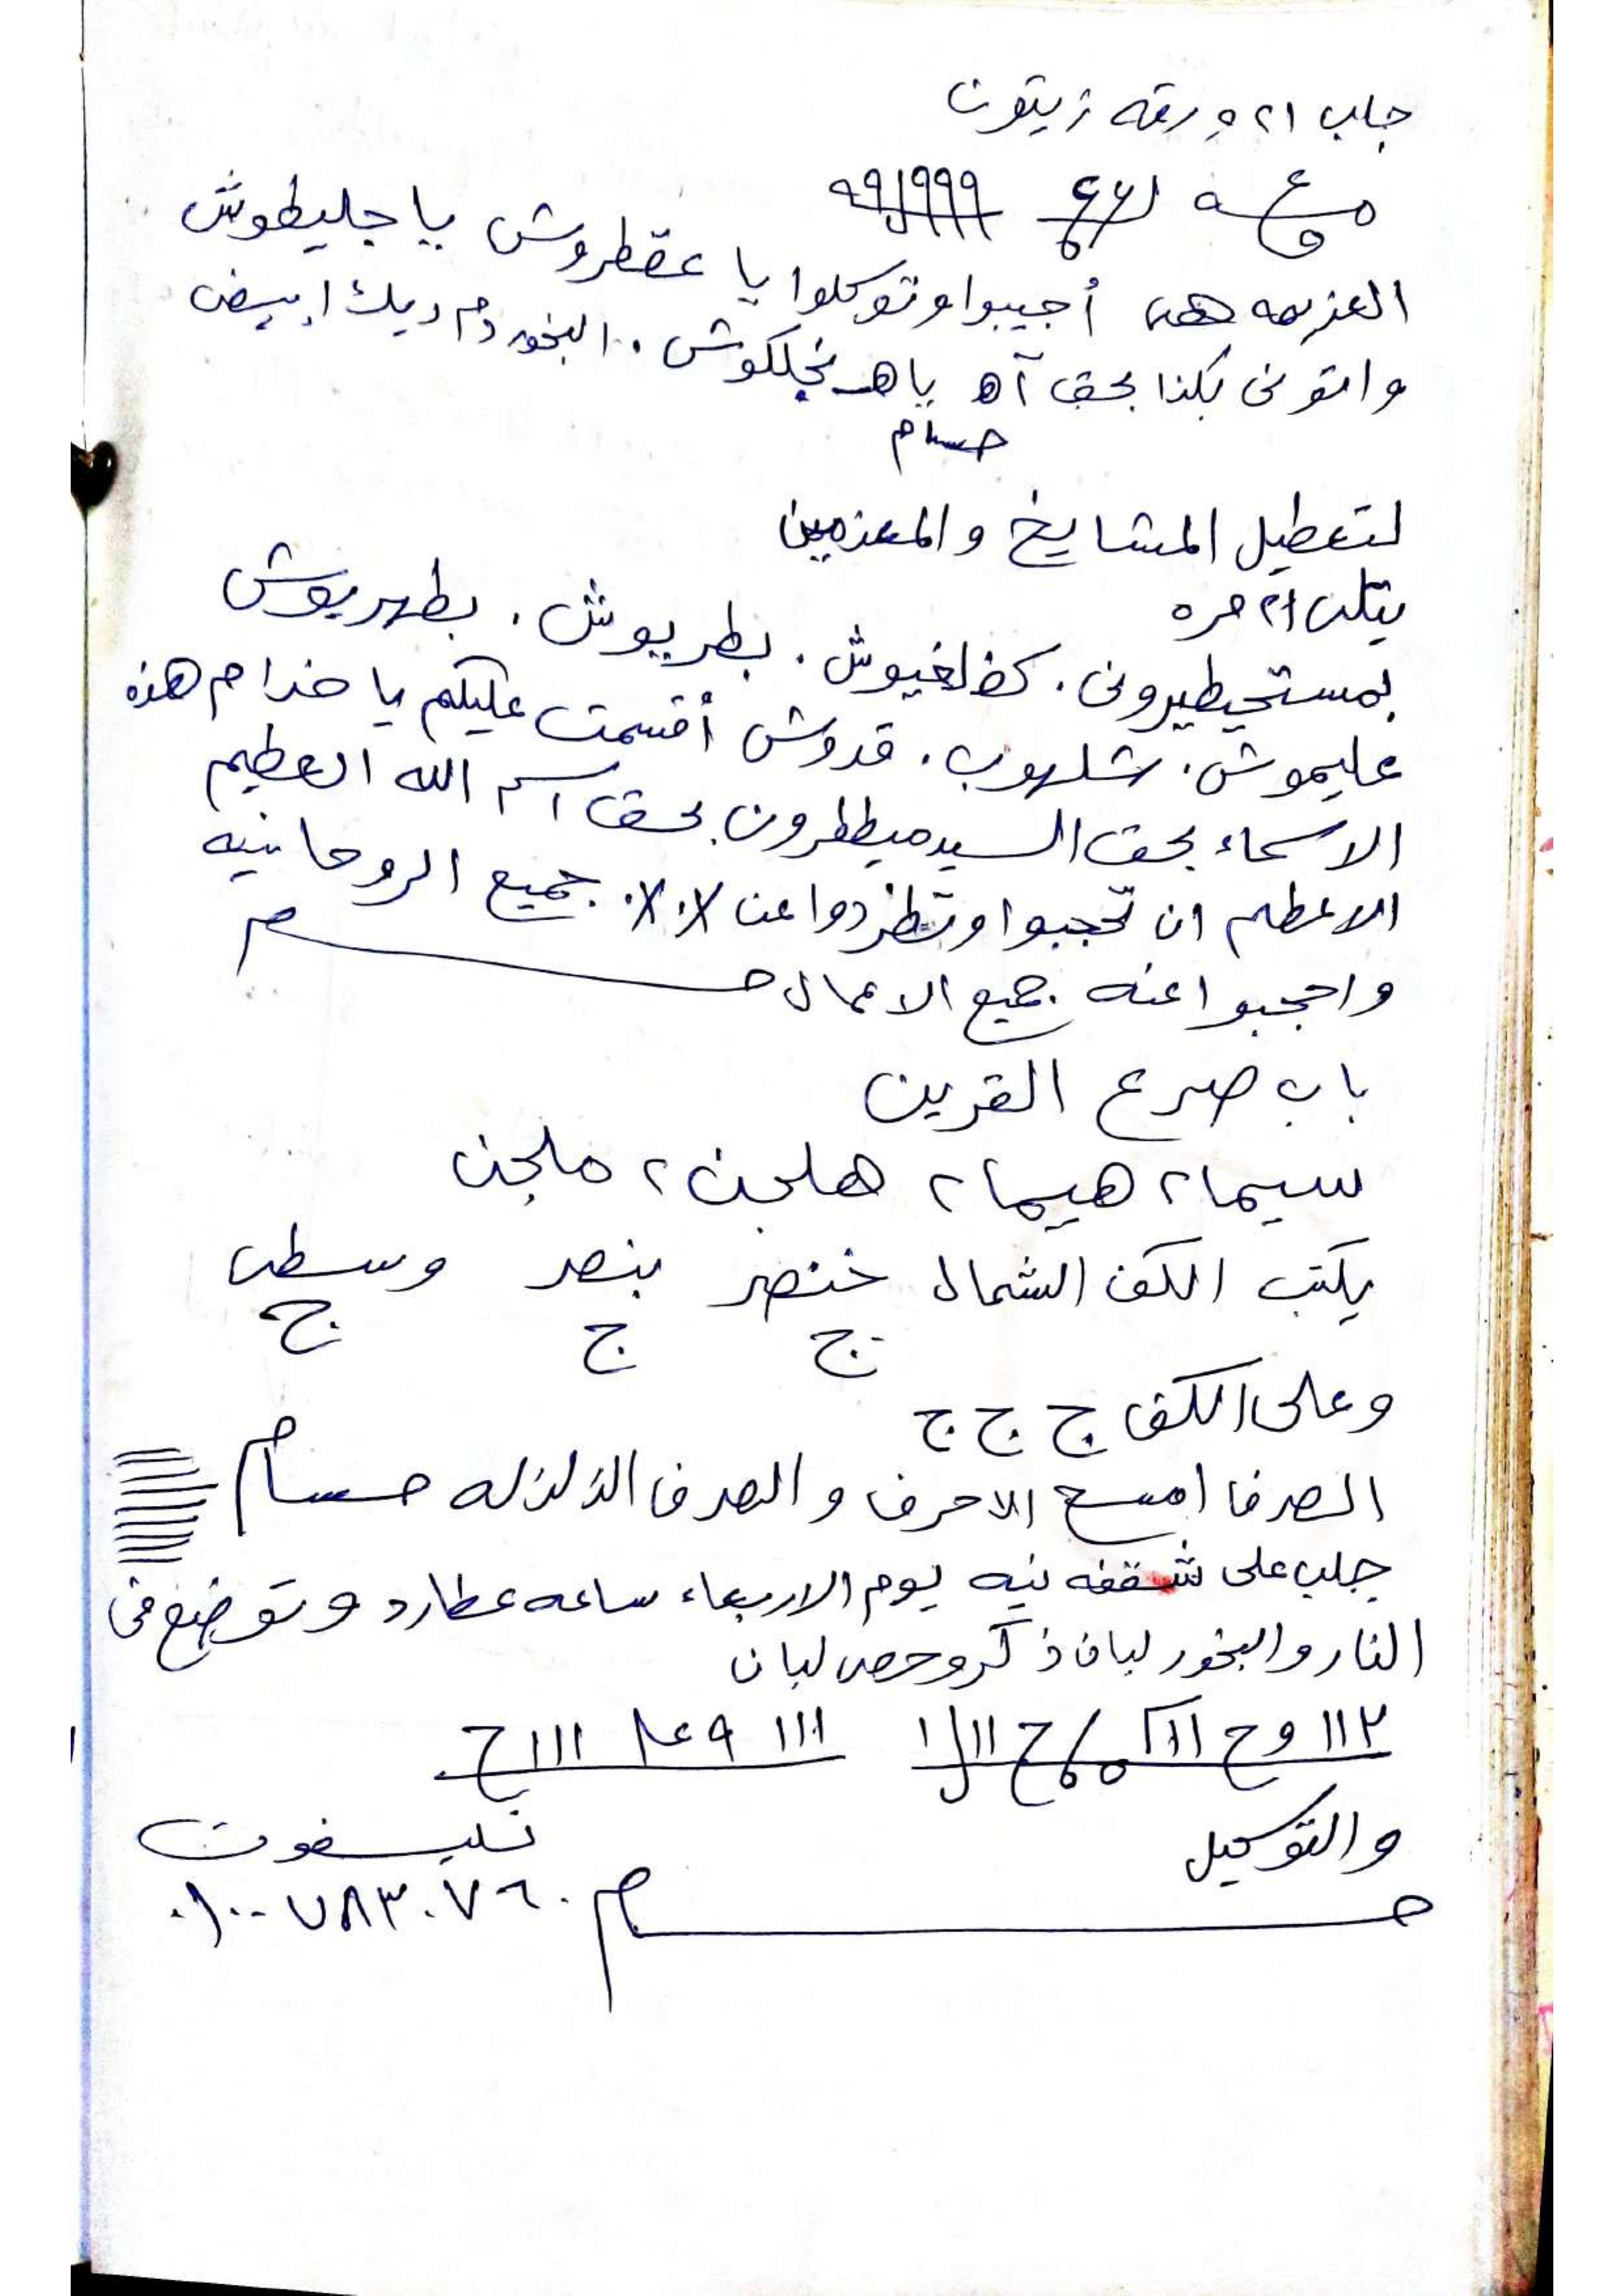 جلب ٢١ ورقه زيتون
٩٩١٩٩٩
العزيمه هى أجيبوا وتوكلوا يا عقطروش يا جليطوش
واتونى بكذا بحق آه ياه نجلكوش . البخور دم ديك ابيض
حسام
لتعطيل المشايخ والمعزمين
يتلى ٢١ مره
بمستحيطيرونى . كضلغيوش . بطريوش . بطهريوش
عليموش . شلهوب . قدوش أقسمت عليكم يا خدام هذه
الاسماء بحق السيد ميططرون بحق اسم الله العظيم
الاعظم ان تحجبوا وتطردوا عن ٪ ٪ جميع الروحانيه
واحجبوا عنه جميع الاعمال حسام
باب صرع القرين
سيما ٢ هيما ٢ هلجن ٢ ملجن
يكتب الكف الشمال خنصر بنصر وسطى
ج ج ج
وعلى الكف ج ج ج
الصرف امسح الاحرف والصرف الزلزله حسام
جلب على شقفه نيه يوم الاربعاء ساعه عطارد وتوضع فى
النار والبخور لبان ذكر وحصى لبان
والتوكيل
تليفون
حسام ٠١٠٠٧٨٣٠٧٦٠